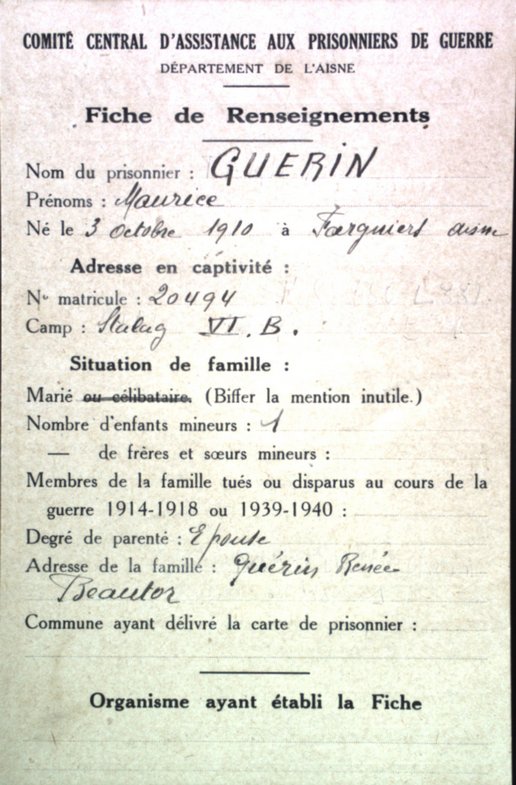 COMITÉ CENTRAL D'ASSISTANCE AUX PRISONNIERS DE GUERRE
DÉPARTEMENT DE L'AISNE
Fiche de Renseignements
Nom du prisonnier : GUERIN
Prénoms : Maurice
Né le 3 octobre 1910 à Fargniers aisne
Adresse en captivité :
No matricule : 20494
Camp : Stalag VI. B.
Situation de famille :
Marié ou célibataire. (Biffer la mention inutile.)
Nombre d'enfants mineurs : 1
— de frères et sœurs mineurs :
Membres de la famille tués ou disparus au cours de la
guerre 1914-1918 ou 1939-1940 :
Degré de parenté : Epouse
Adresse de la famille : Guérin Renée
Beautor
Commune ayant délivré la carte de prisonnier :
Organisme ayant établi la Fiche